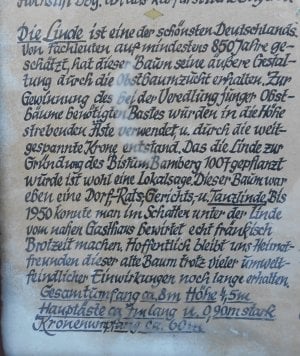 Die Linde ist eine der schönsten Deutschlands.
Von Fachleuten auf mindestens 850 Jahre ge-
schätzt, hat dieser Baum seine äußere Gestal-
tung durch die Obstbaumzucht erhalten. Zur
Gewinnung des bei der Veredlung junger Obst-
bäume benötigten Bastes wurden in die Höhe
strebenden Äste verwendet u. durch die weit-
gespannte Krone entstand. Das die Linde zur
Gründung des Bistum Bamberg 1007 gepflanzt
würde ist wohl eine Lokalsage. Dieser Baum war
eben eine Dorf-Rats, Gerichts,-u. Tanzlinde. Bis
1950 konnte man im Schatten unter der Linde
vom nahen Gasthaus bewirtet echt fränkisch
Brotzeit machen. Hoffentlich bleibt uns Heimat-
freunden dieser alte Baum trotz vieler umwelt-
feindlicher Einwirkungen noch lange erhalten.
Gesamtumfang ca. 8m Höhe
Hauptäste ca. lang u. 0,90m stark
Kronenumfang ca. 60m